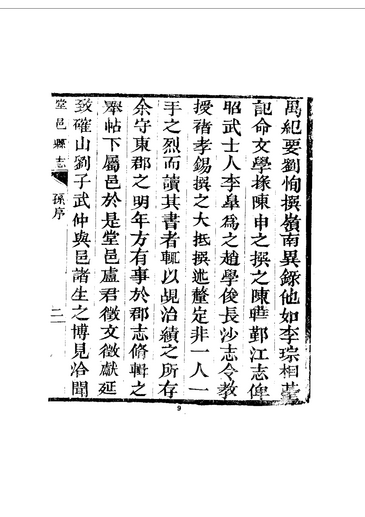 萬紀要劉恂撰嶺南異錄他如李琮相臺
記命文學掾陳申之撰之陳曄鄞江志俾
昭武士人李皐為之趙學俊長沙志令教
授褚孝錫撰之大抵撰述釐定非一人一
手之烈而讀其書者輒以覘治績之所存
余守東郡之明年方有事於郡志脩輯之
舉帖下屬邑於是堂邑盧君徵文徵獻延
致確山劉子武仲與邑諸生之博見洽聞
堂邑縣志
孫序
二
9